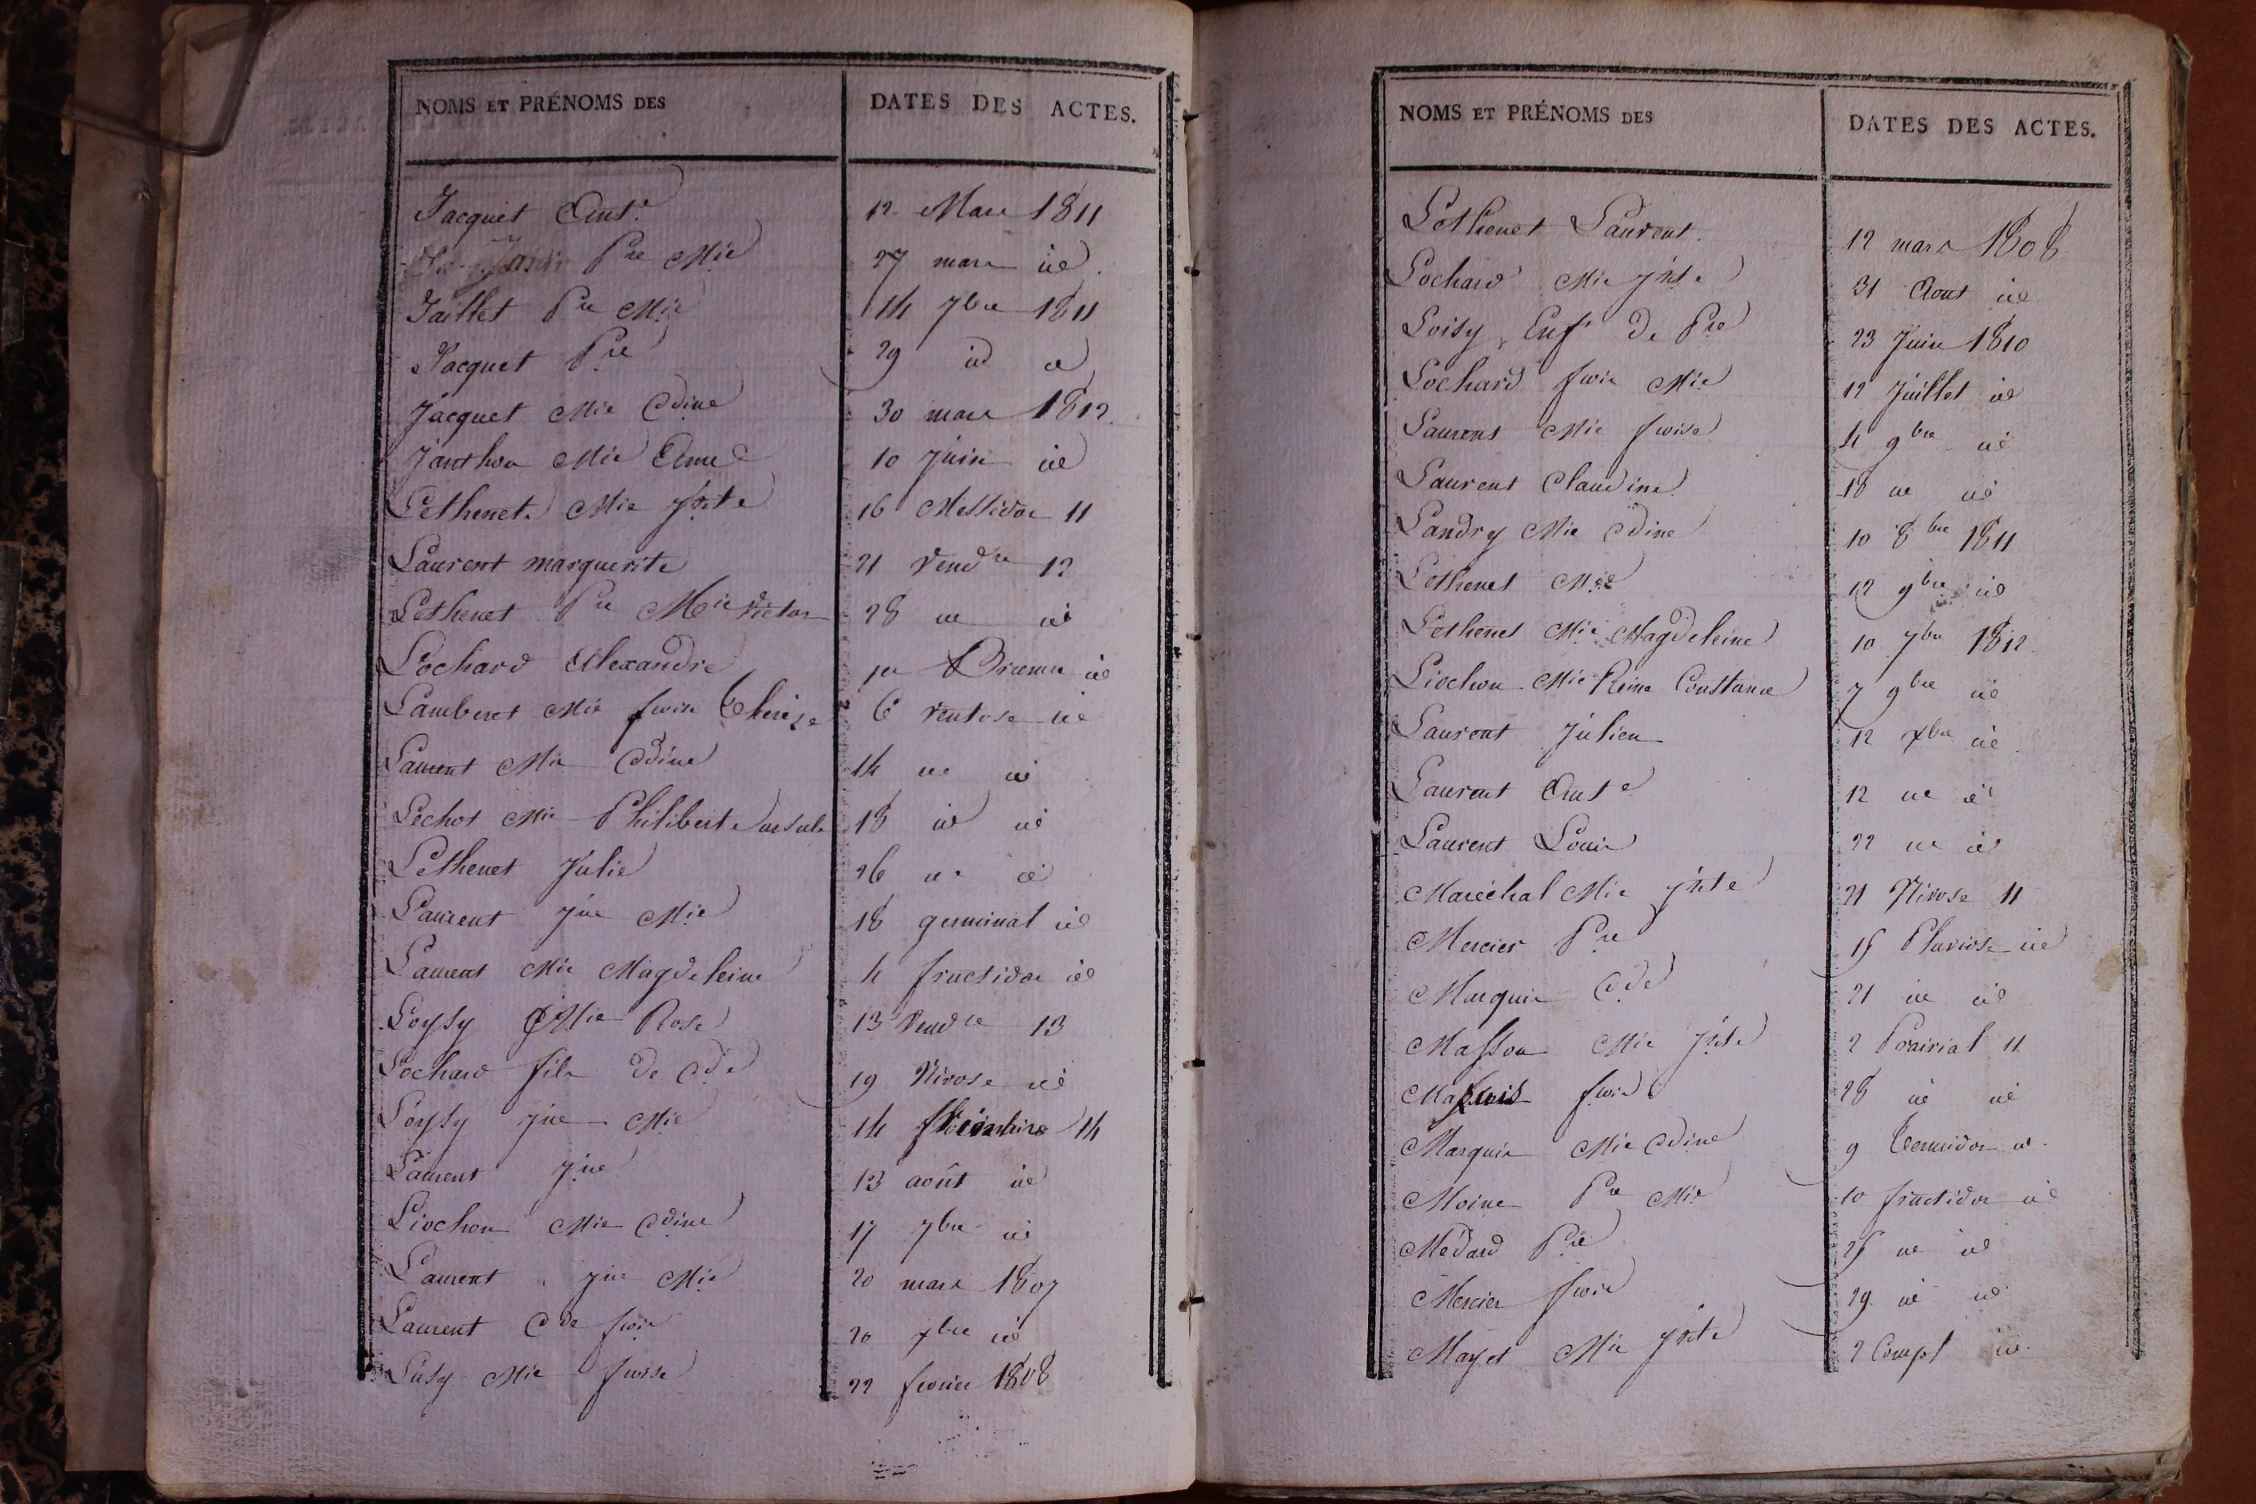 NOMS ET PRÉNOMS DES DATES DES ACTES.
Jacquet Ant.e 12 Mars 1811
Pre Mie 27 mars id
Jaillet Pre Mie 14 7bre 1811
Jacquet Pre 29 id id
Jacquet Mie Cdine 30 mars 1812
Janthon Mie Anne 10 Juin id
Lethenet Mie Jnte 16 Messidor 11
Laurent marguerite 21 Vendre 12
Lethenet Pre Mie Victor 28 id id
Lochard Alexandre 1er Brumre id
Lamberet Mie frse Therese 6 ventose id
Laurent Mie Cdine 14 id id
Lechot Mie Philiberte ursule 18 id id
Lethenet Julie 26 id id
Laurent Jne Mie 18 germinal id
Laurent Mie Magdeleine 4 fructidor id
Loysy Mie Rose 13 Vendre 13
Lochard fils de Cde 19 Nivose id
Loysy Jne Mie 14 14
Laurent Jne 13 août id
Liochon Mie Cdine 17 7bre id
Laurent Jne Mie 20 mars 1807
Laurent Cde frois 20 xbre id
Lusy Mie froise 22 fevrier 1808
NOMS ET PRÉNOMS DES DATES DES ACTES.
Lethenet Laurent 12 mars 1808
Lochard Mie Jnte 31 Aout id
Loisy Enft de Pre 23 Juin 1810
Lochard frois Mie 12 Juillet id
Laurent Mie froise 4 9bre id
Laurent Claudine 18 id id
Landry Mie Cdine 10 8bre 1811
Lethenet Mie 12 9bre id
Lethenet Mie Magdeleine 10 7bre 1812
Liochon Mie Reine Constance 7 9bre id
Laurent Julien 12 xbre id
Laurent Ante 12 id id
Laurent Louis 22 id id
Maréchal Mie Jnte 21 Nivose 11
Mercier Pre 15 Pluviose id
Marquis Cde 21 id id
Masson Mie Jnte 2 Prairial 11
frois 28 id id
Marquis Mie Cdine 9 Termidor id
Moine Pre Mie 10 fructidor id
Médard Pre 25 id id
Mercier frois 29 id id
Mayet Mie Jnte 2 Compl id